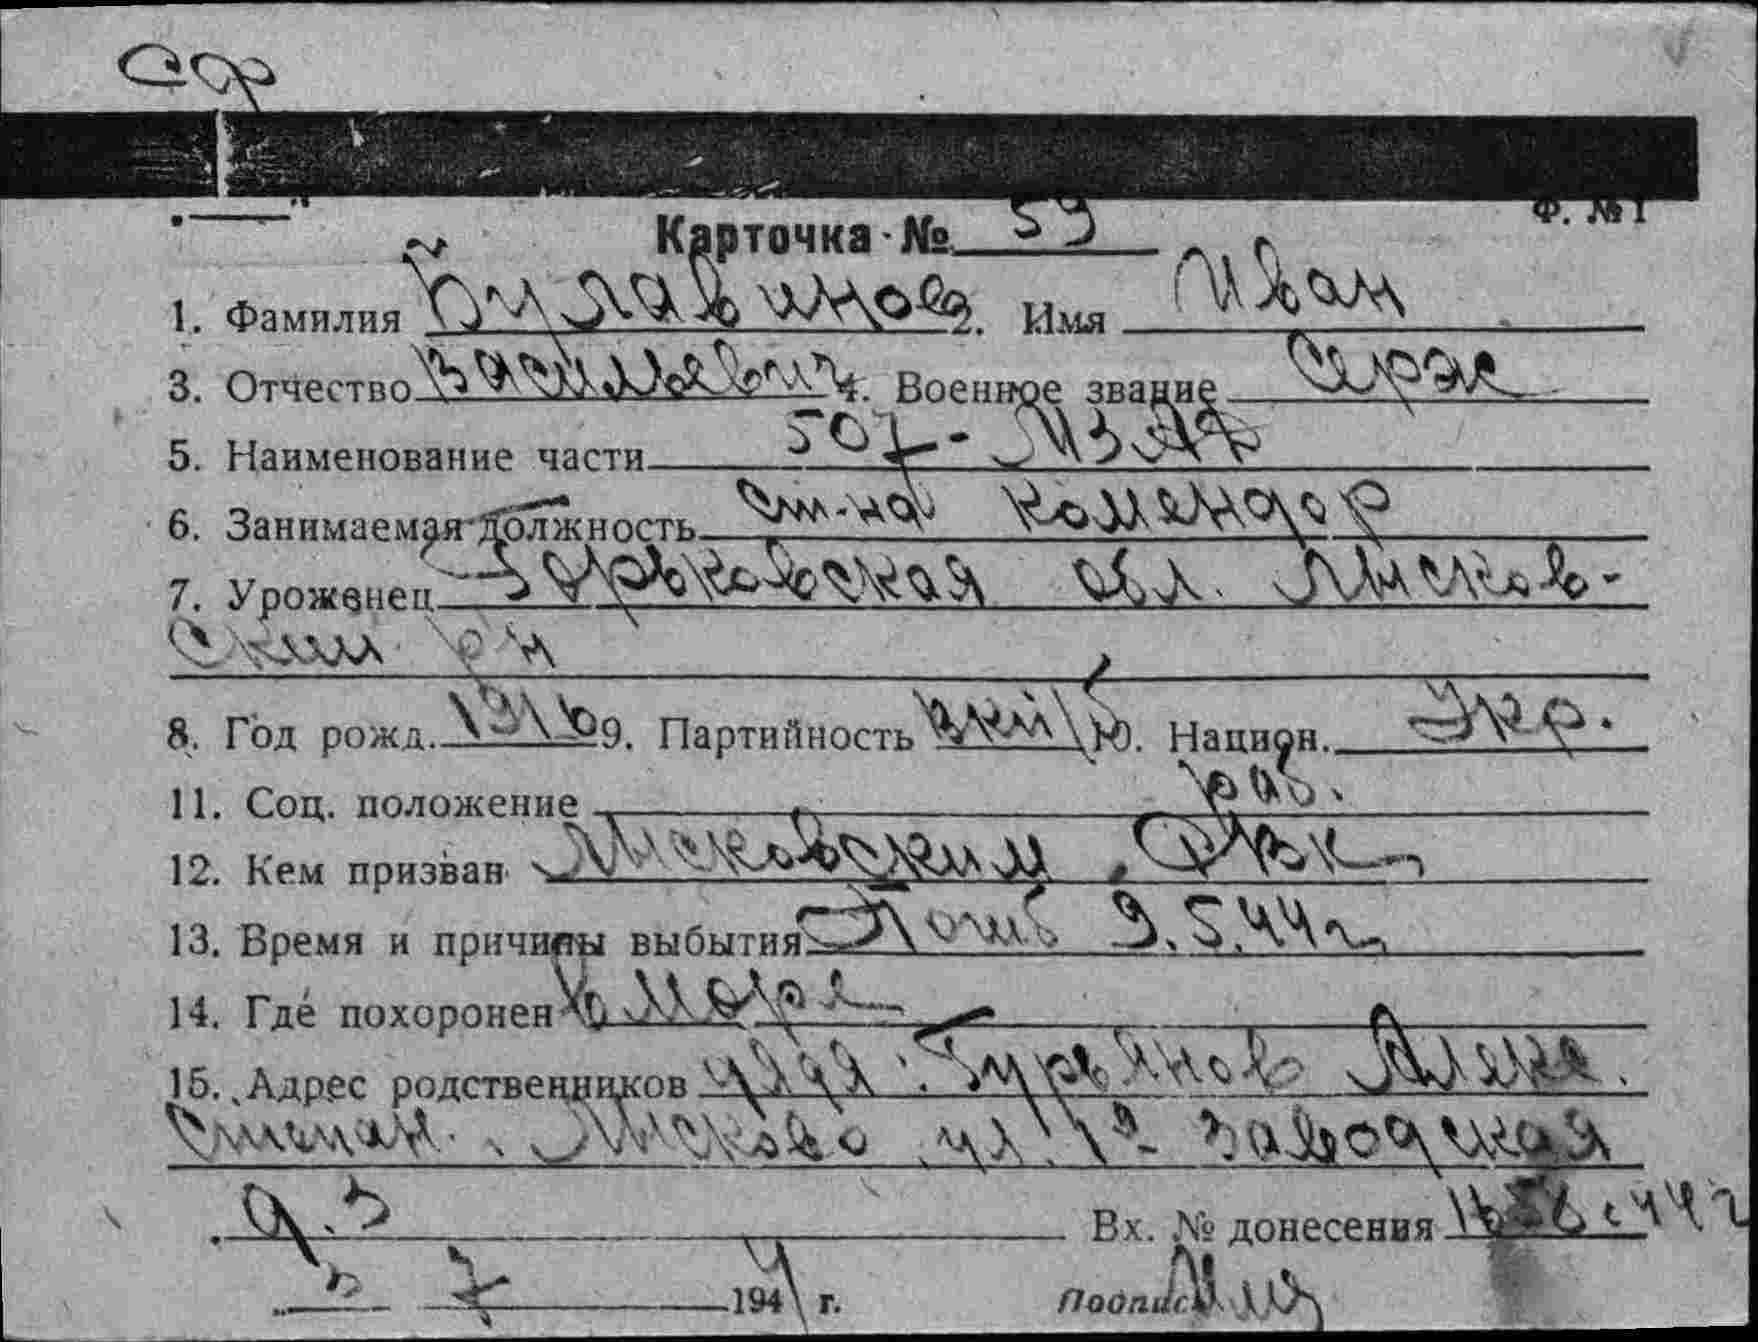 сф
Ф. №1
Карточка № 59
1. Фамилия Булавинов 2. Имя Иван
3. Отчество Васильевич 4. Военное звание Серж
5. Наименование части 507-МЗАД
6. Занимаемая должность ст-на комендор
7. Уроженец Горьковская обл. Лысков-
ский р-н
8. Год рожд. 1916 9. Партийность ВКП/б 10. Национ. Укр.
11. Соц. положение раб.
12. Кем призван Лысковским РВК
13. Время и причины выбытия Погиб 9.5.44г.
14. Где похоронен в море
15. Адрес родственников дядя: Гурьянов Алекс.
Степан. Лысково ул. 1я Заводская
д. 3
Вх. № донесения с 44г
3 7 1944 г. Подпись